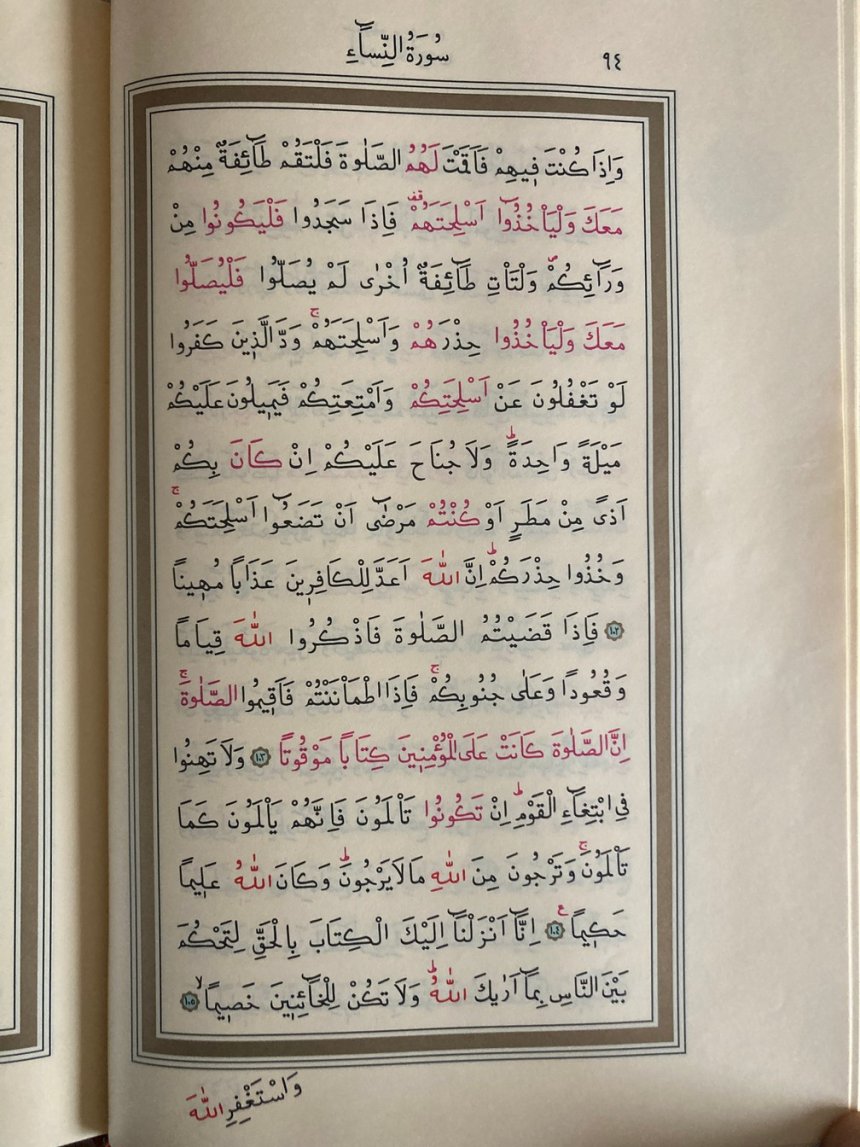 ٩٤
سُورَةُ النِّسَٓاءِ
وَاِذَا كُنْتَ ف۪يهِمْ فَاَقَمْتَ لَهُمُ الصَّلٰوةَ فَلْتَقُمْ طَٓائِفَةٌ مِنْهُمْ
مَعَكَ وَلْيَأْخُذُٓوا اَسْلِحَتَهُمْ۠ فَاِذَا سَجَدُوا فَلْيَكُونُوا مِنْ
وَرَٓائِكُمْۖ وَلْتَأْتِ طَٓائِفَةٌ اُخْرٰى لَمْ يُصَلُّوا فَلْيُصَلُّوا
مَعَكَ وَلْيَأْخُذُوا حِذْرَهُمْ وَاَسْلِحَتَهُمْۚ وَدَّ الَّذ۪ينَ كَفَرُوا
لَوْ تَغْفُلُونَ عَنْ اَسْلِحَتِكُمْ وَاَمْتِعَتِكُمْ فَيَم۪يلُونَ عَلَيْكُمْ
مَيْلَةً وَاحِدَةًۜ وَلَا جُنَاحَ عَلَيْكُمْ اِنْ كَانَ بِكُمْ
اَذًى مِنْ مَطَرٍ اَوْ كُنْتُمْ مَرْضٰٓى اَنْ تَضَعُٓوا اَسْلِحَتَكُمْۚ
وَخُذُوا حِذْرَكُمْۜ اِنَّ اللّٰهَ اَعَدَّ لِلْكَافِر۪ينَ عَذَاباً مُه۪يناً
﴿١٠٢﴾ فَاِذَا قَضَيْتُمُ الصَّلٰوةَ فَاذْكُرُوا اللّٰهَ قِيَاماً
وَقُعُوداً وَعَلٰى جُنُوبِكُمْۚ فَاِذَا اطْمَأْنَنْتُمْ فَاَق۪يمُوا الصَّلٰوةَۚ
اِنَّ الصَّلٰوةَ كَانَتْ عَلَى الْمُؤْمِن۪ينَ كِتَاباً مَوْقُوتاً ﴿١٠٣﴾ وَلَا تَهِنُوا
فِي ابْتِغَٓاءِ الْقَوْمِۜ اِنْ تَكُونُوا تَأْلَمُونَ فَاِنَّهُمْ يَأْلَمُونَ كَمَا
تَأْلَمُونَۚ وَتَرْجُونَ مِنَ اللّٰهِ مَا لَا يَرْجُونَۜ وَكَانَ اللّٰهُ عَل۪يماً
حَك۪يماً۟ ﴿١٠٤﴾ اِنَّٓا اَنْزَلْنَٓا اِلَيْكَ الْكِتَابَ بِالْحَقِّ لِتَحْكُمَ
بَيْنَ النَّاسِ بِمَٓا اَرٰيكَ اللّٰهُۜ وَلَا تَكُنْ لِلْخَٓائِن۪ينَ خَص۪يماًۙ ﴿١٠٥﴾
وَاسْتَغْفِرِ اللّٰهَ